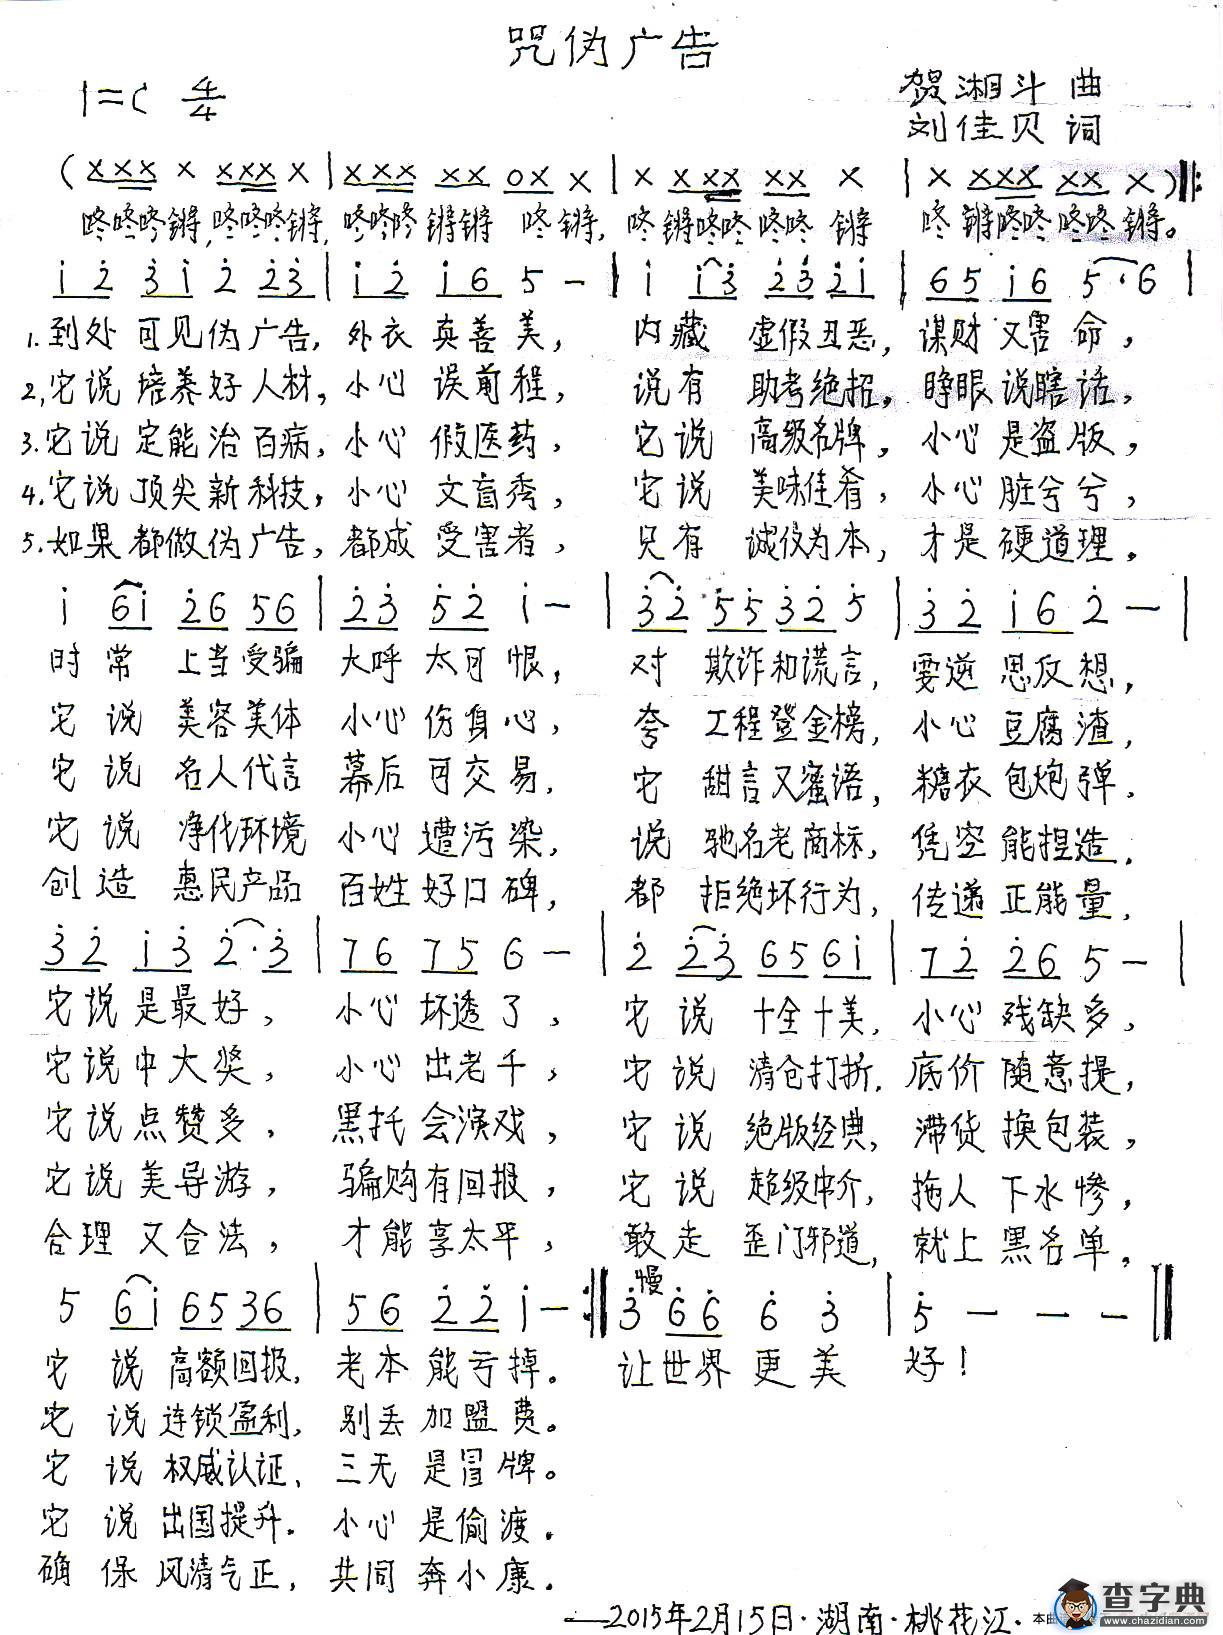 咒伪广告
1=C 4/4
贺湘斗 曲
刘佳贝 词
(XXX X XXX X | XXX XX 0X X | X XXX XX X | X XXX XX X)‖:
咚咚咚锵,咚咚咚锵,咚咚咚锵锵 咚锵,咚锵咚咚咚咚 锵 咚锵咚咚咚咚锵。
i 2 3 i 2 2 3 | i 2 i 6 5 - | i i 3 2 3 2 i | 6 5 i 6 5 · 6 |
1.到处可见伪广告,外衣真善美,内藏虚假丑恶,谋财又害命,
2,它说培养好人材,小心误前程,说有助考绝招,睁眼说瞎话,
3.它说定能治百病,小心假医药,它说高级名牌,小心是盗版,
4.它说顶尖新科技,小心文盲秀,它说美味佳肴,小心脏兮兮,
5.如果都做伪广告,都成受害者,只有诚信为本,才是硬道理。
i 6 i 2 6 5 6 | 2 3 5 2 i - | 3 2 5 5 3 2 5 | 3 2 i 6 2 - |
时常上当受骗 大呼太可恨,对欺诈和谎言,要逆思反想,
它说美容美体 小心伤身心,夸工程登金榜,小心豆腐渣,
它说名人代言 幕后可交易,它甜言又蜜语,糖衣包炮弹.
它说净化环境 小心遭污染,说驰名老商标,凭空能捏造.
创造惠民产品 百姓好口碑,都拒绝坏行为,传递正能量.
3 2 i 3 2 · 3 | 7 6 7 5 6 - | 2 2 3 6 5 6 i | 7 2 2 6 5 - |
它说是最好,小心坏透了,它说十全十美,小心残缺多,
它说中大奖,小心出老千,它说清仓打折.底价随意提,
它说点赞多,黑托会演戏,它说绝版经典,滞货换包装,
它说美导游,骗购有回报,它说超级中介,拖人下水惨,
合理又合法,才能享太平,敢走歪门邪道,就上黑名单。
慢
5 6 i 6 5 3 6 | 5 6 2 2 i - :‖ 3 6 6 6 3 | 5 - - - ‖
它说高额回报,老本能亏掉。让世界更美 好!
它说连锁盈利,别丢加盟费。
它说权威认证,三无是冒牌。
它说出国提升.小心是偷渡.
确保风清气正,共同奔小康.
——2015年2月15日·湖南·桃花江·
本曲
查字典
www.chazidian.com